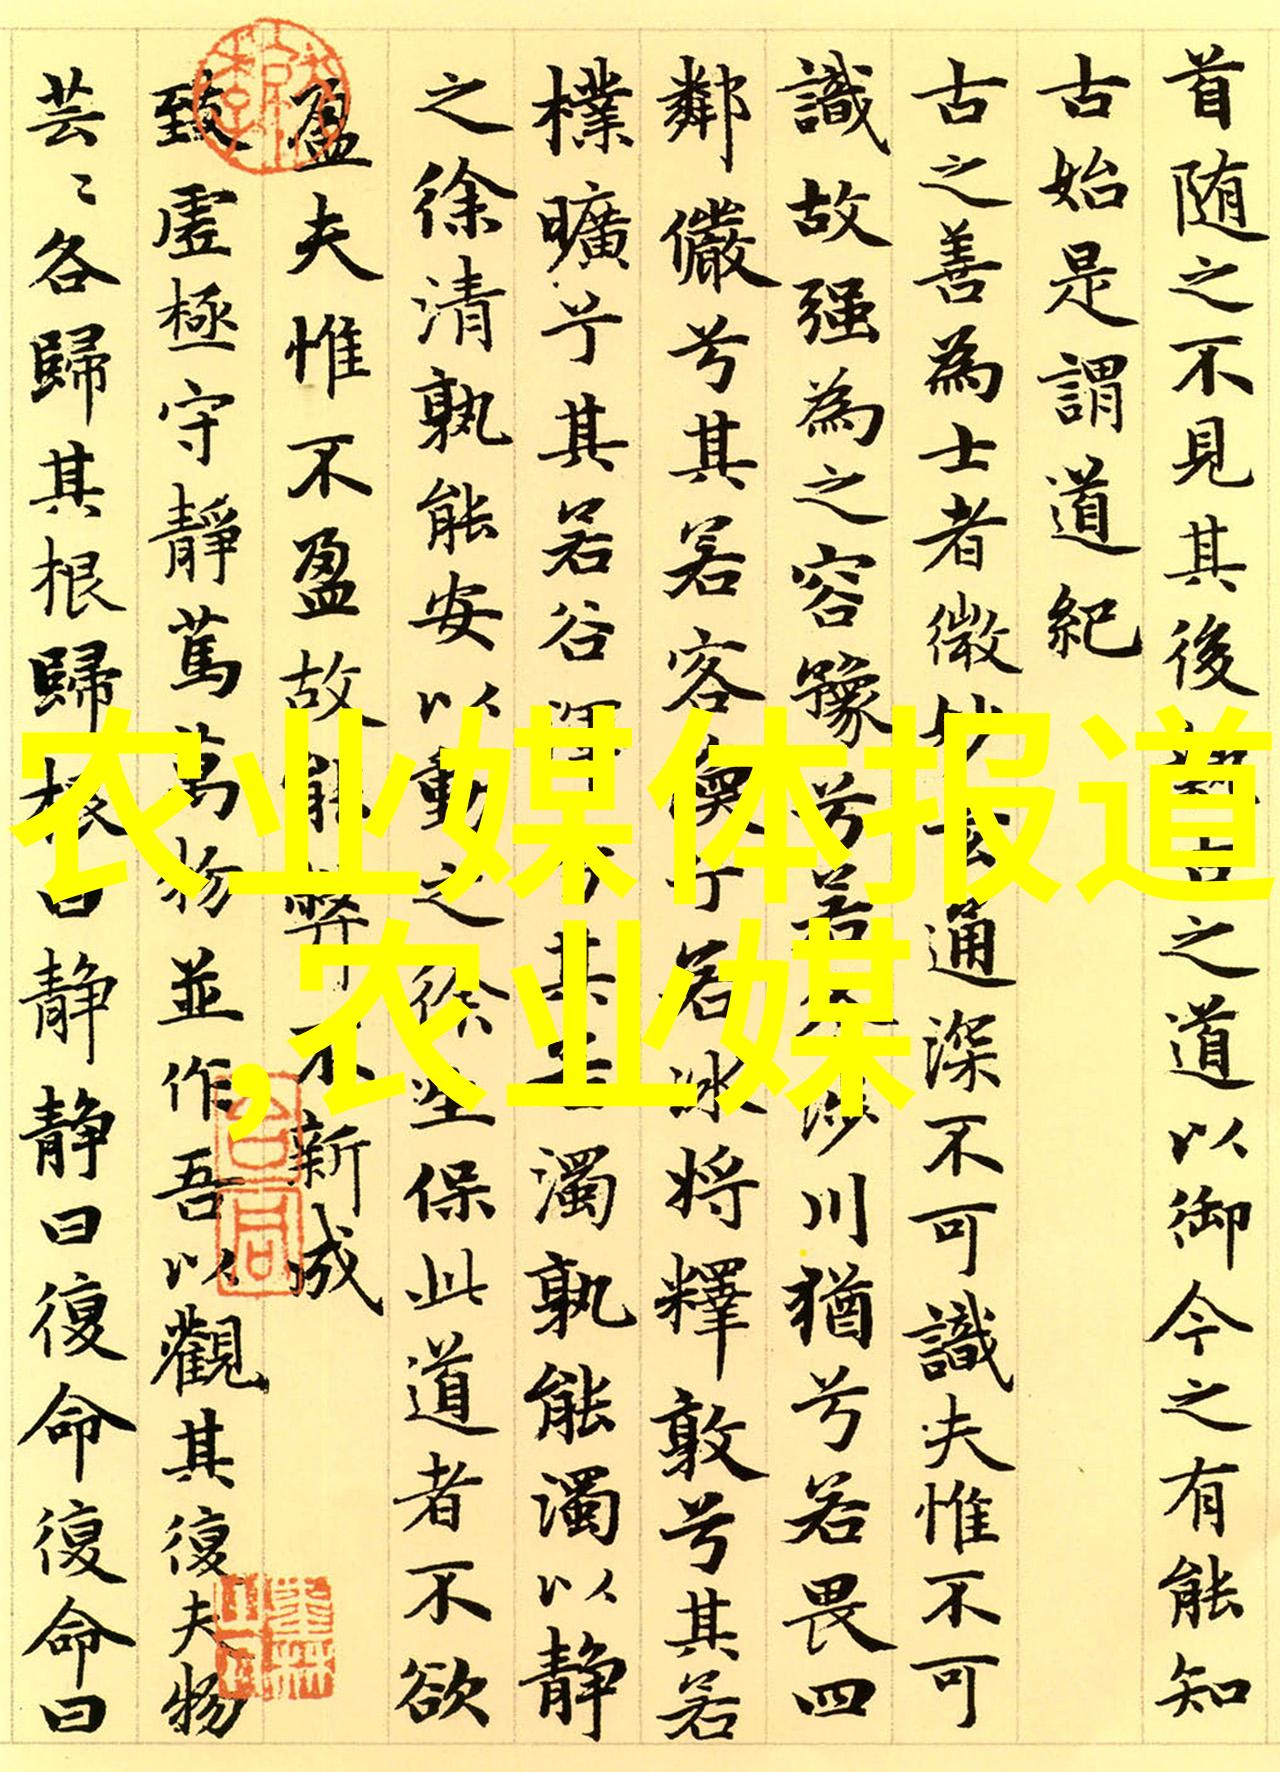 首随之不見其後之道以御今之有能知
古始是謂道紀
古之善為士者微妙玄通深不可識夫惟不可
識故强為之容豫兮若涉川猶兮若畏四
鄰儼兮其若客渙兮若冰将釋敦兮其若
樸曠兮其若谷渾兮其若濁孰能濁以静
之徐清孰能安以動之徐生保此道者不欲
盈夫惟不盈故能弊不新成
致虚極守靜篤萬物並作吾以觀其復夫物
芸〻各歸其根歸根曰静静曰復命復命曰
农业媒体报道
,农业媒